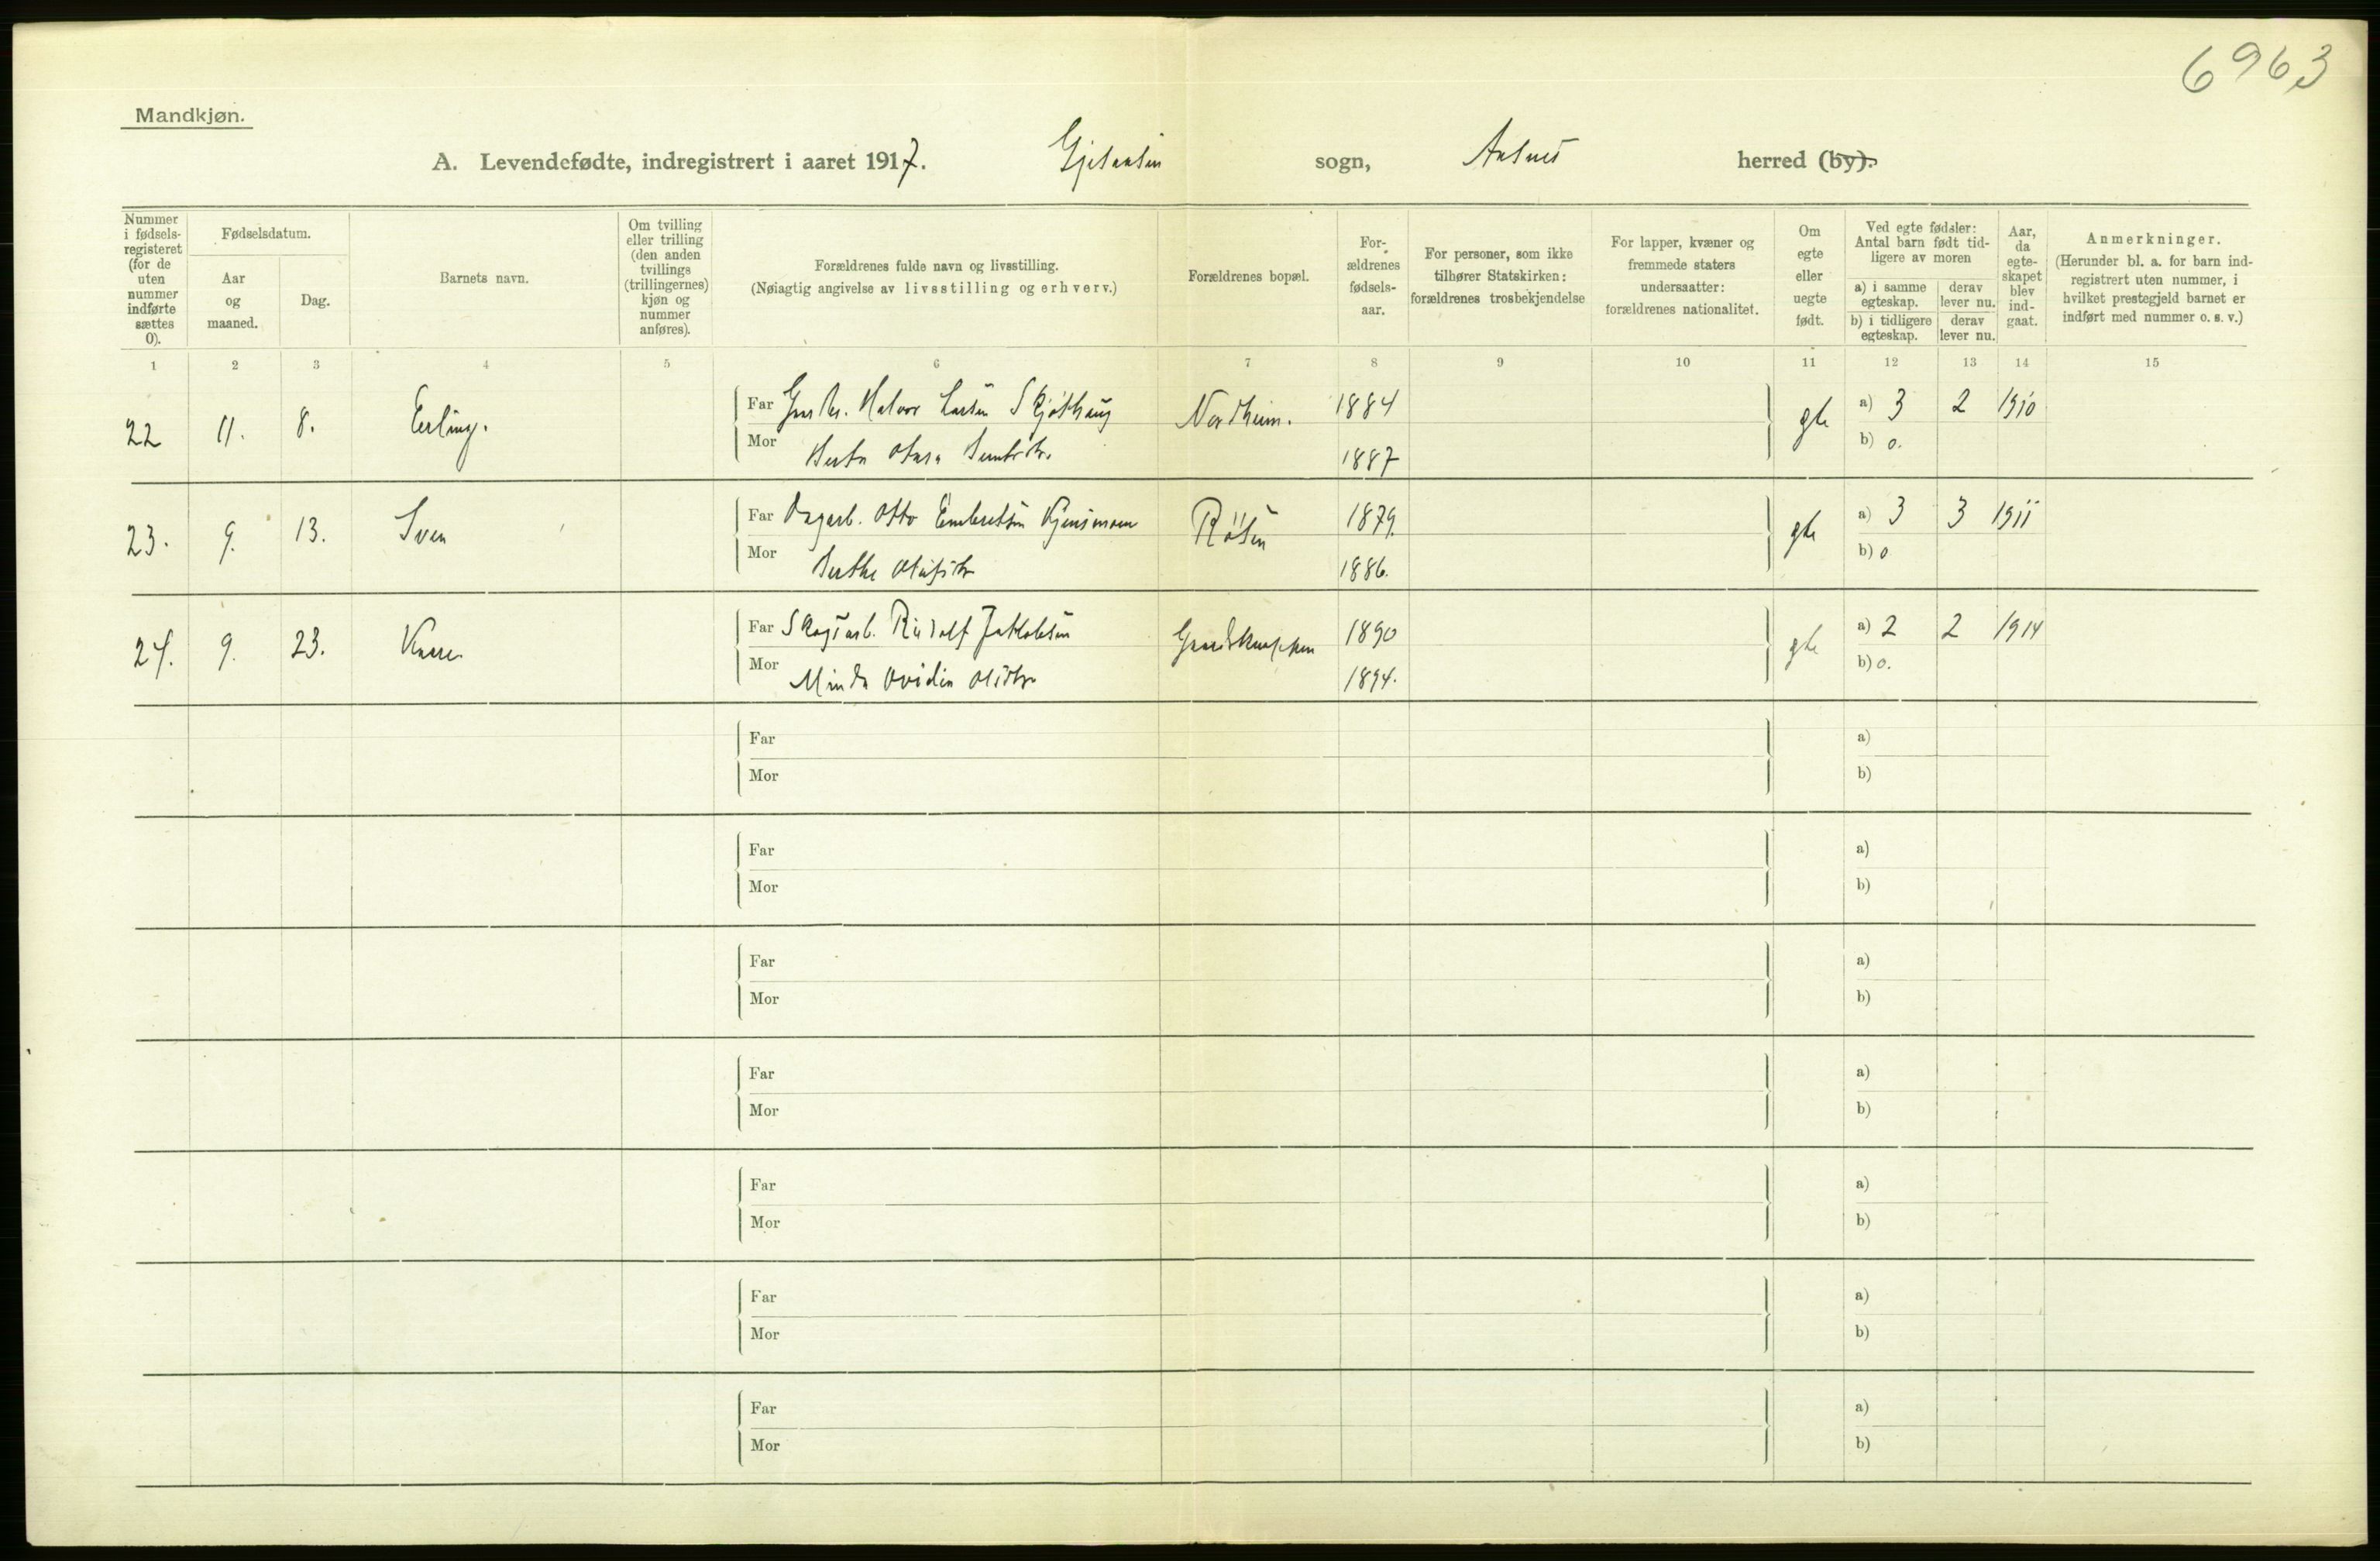 6963
Mandkjøn.
A. Levendefødte, indregistrert i aaret 1917. Gjesaasen sogn, Aasnes herred (by).
Nummer i fødsels-registeret (for de uten nummer indførte sættes 0).
Fødselsdatum.
Aar og maaned.
Dag.
Barnets navn.
Om tvilling eller trilling (den anden tvillings (trillingernes) kjøn og nummer anføres).
Forældrenes fulde navn og livsstilling.
(Nøiagtig angivelse av livsstilling og erhverv.)
Forældrenes bopæl.
For-ældrenes fødsels-aar.
For personer, som ikke tilhører Statskirken: forældrenes trosbekjendelse
For lapper, kvæner og fremmede staters undersaatter: forældrenes nationalitet.
Om egte eller uegte født.
Ved egte fødsler: Antal barn født tid-ligere av moren
a) i samme egteskap.
derav lever nu.
b) i tidligere egteskap.
derav lever nu.
Aar, da egte-skapet blev ind-gaat.
Anmerkninger.
(Herunder bl. a. for barn ind-registrert uten nummer, i hvilket prestegjeld barnet er indført med nummer o. s. v.)
1 2 3 4 5 6 7 8 9 10 11 12 13 14 15
22 11. 8. Erling. Far Halvor Larsen Skjøthaug Nordheim. 1884 gte a) 3 2 1910
Mor 1887 b) 0.
23. 9. 13. Sven Far Dagarb. Otto Embretsen Røsen 1879. gte a) 3 3 1911
Mor Berthe 1886. b) 0
24. 9. 23. Kaare Far Skogsarb. Rudolf Jakobsen 1890 gte a) 2 2 1914
Mor Minda Ovidia Olsdtr. 1894. b) 0.
Far a)
Mor b)
Far a)
Mor b)
Far a)
Mor b)
Far a)
Mor b)
Far a)
Mor b)
Far a)
Mor b)
Far a)
Mor b)